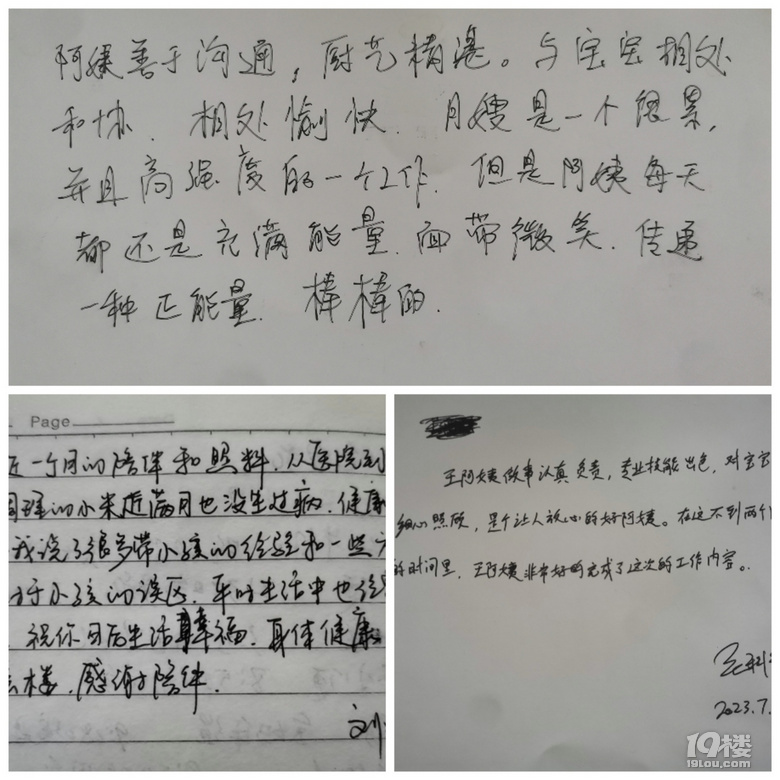 阿姨善于沟通，厨艺精湛。与宝宝相处
和协、相处愉快、月嫂是一个很累，
并且高强度的一个工作、但是阿姨每天
都还是充满能量、面带微笑、传递
一种正能量、棒棒的.
Page
近一个月的陪伴和照料、从医院到
的小米近满月也没生过病、健康
我说了很多带小孩的经验和一些
于小孩的误区、平时生活中也
祝你日后生活幸福、身体健康
么棒、感谢陪伴.
刘
王阿姨做事认真负责，专业技能出色，对宝宝
细心照顾，是个让人放心的好阿姨。在这不到两个
的时间里，王阿姨非常好的完成了这次的工作内容。
2023.7.
19楼
19lou.com